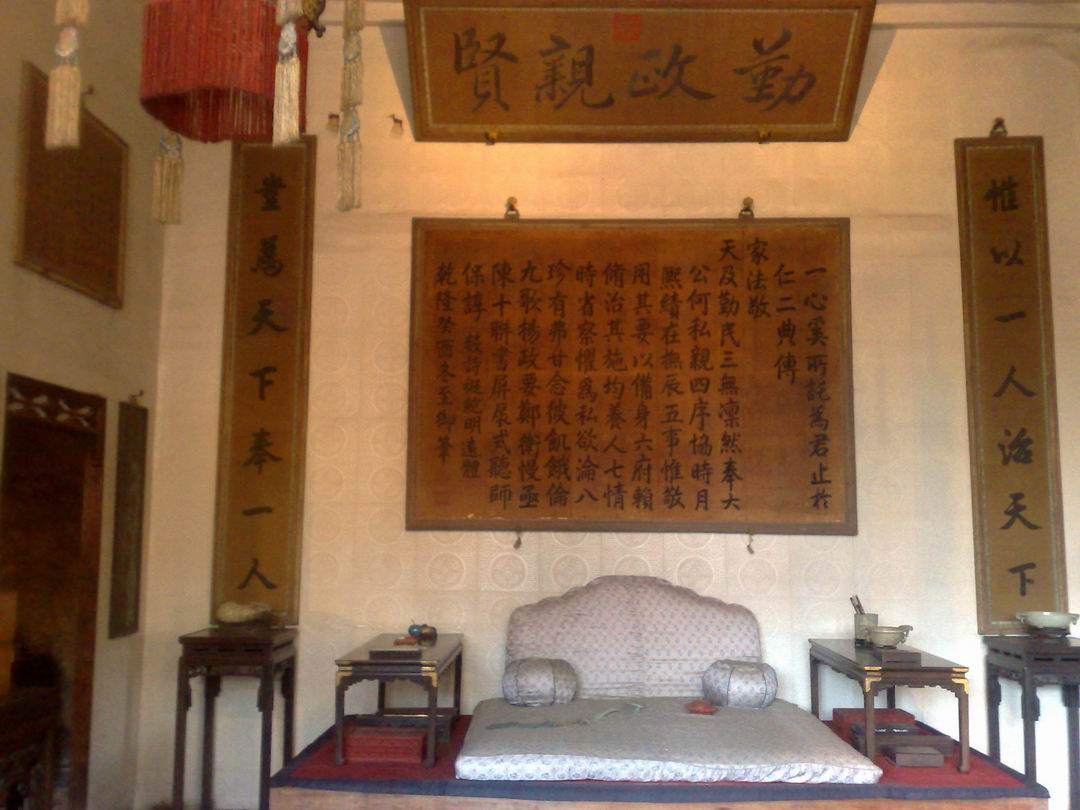 勤政親賢
惟以一人治天下
一心奚所託為君止於
仁二典傳
家法敬
天及勤民三無凛然奉大
公何私親四序協時月
熙績在撫辰五事惟敬
用其要以備身六府賴
脩治其施均養人七情
時省察懼為私欲淪八
珍有弗甘念彼飢餓倫
九歌揚政要鄭衛慢亟
陳十聯書屏扆式聽師
保諄 數詩擬鮑明遠體
乾隆癸酉冬至御筆
豈為天下奉一人